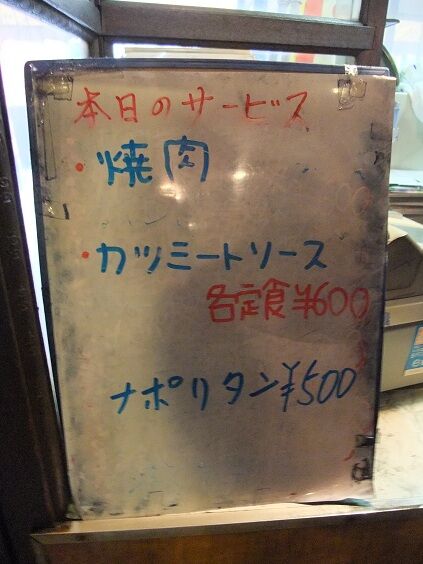 本日のサービス
・焼肉
・カツミートソース
各定食¥600
ナポリタン¥500